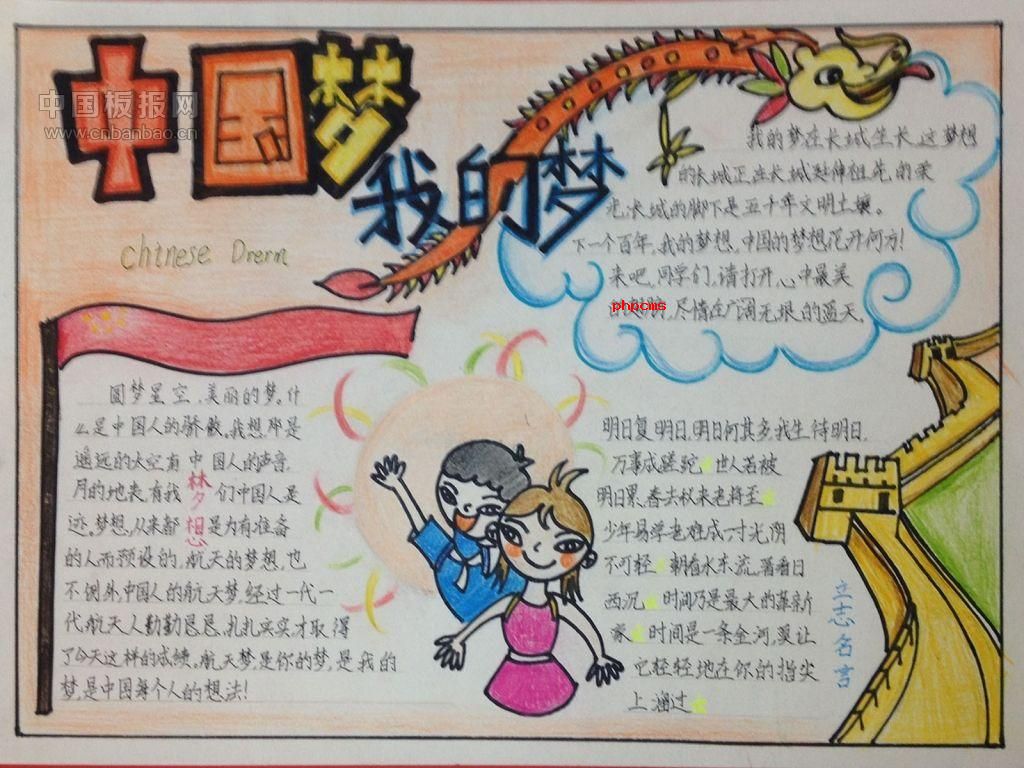 中国梦
中国板报网
www.cnbanbao.cn
我的梦
Chtnese Drerm
我的梦在长城生长,这梦想
的长城正在长城延伸祖先的荣
光,长城的脚下是五千年文明土壤。
下一个百年,我的梦想,中国的梦想花开何方!
来吧,同学们,请打开心中最美
phpcms
尽情在广阔无垠的蓝天。
圆梦星空,美丽的梦。什
么是中国人的骄傲。我想那是
遥远的太空有中国人的声音,
月的地表有我们中国人是
迹。梦想,从来都是为有准备
梦想
的人而预设的,航天的梦想,也
不例外,中国人的航天梦,经过一代一
代航天人勤勤恳恳,扎扎实实才取得
了今天这样的成绩。航天梦,是你的梦,是我的
梦,是中国每个人的想法!
明日复明日,明日何其多,我生待明日,
万事成蹉跎 世人若被
明日累,春去秋来老将至
少年易学老难成,一寸光阴
不可轻 朝看水东流,暮看日
西沉 时间乃是最大的革新
家 时间是一条金河,莫让
它轻轻地在你的指尖
上溜过
立志名言